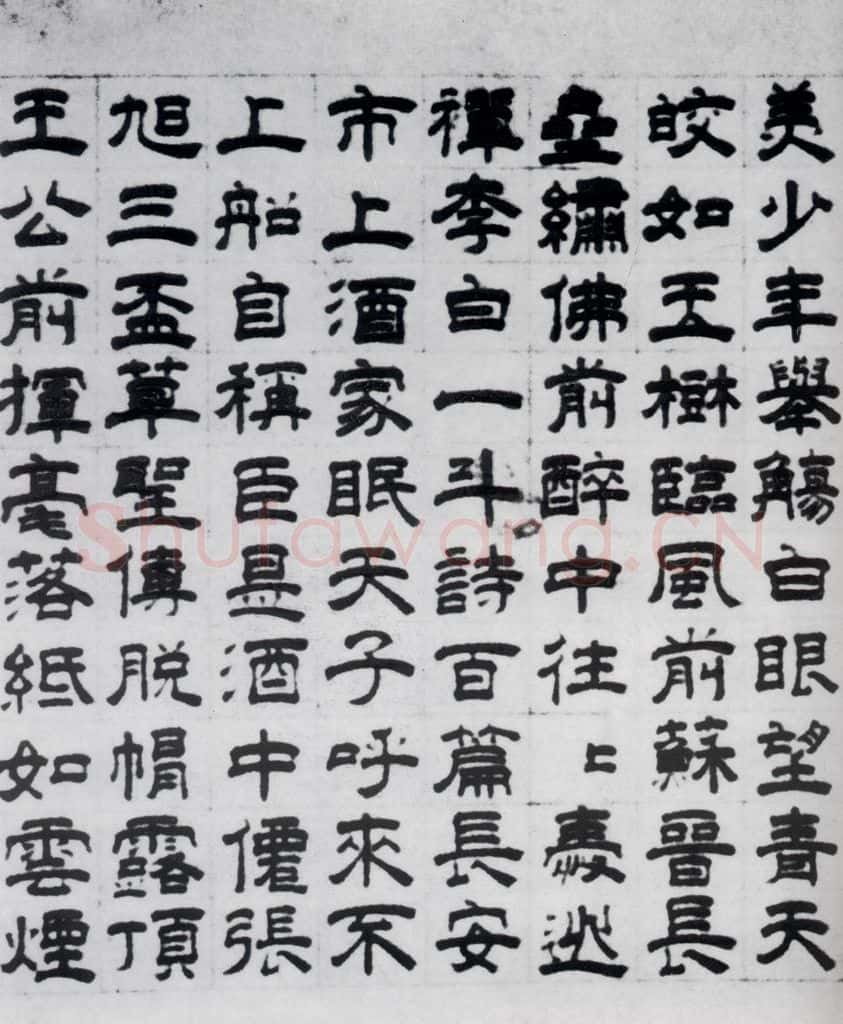 美少年舉觴白眼望青天
皎如玉樹臨風前蘇晉長
齋繡佛前醉中往〻愛逃
禪李白一斗詩百篇長安
市上酒家眠天子呼來不
上船自稱臣是酒中僊張
旭三盃草聖傳脫帽露頂
王公前揮毫落紙如雲煙
Shufawang.CN